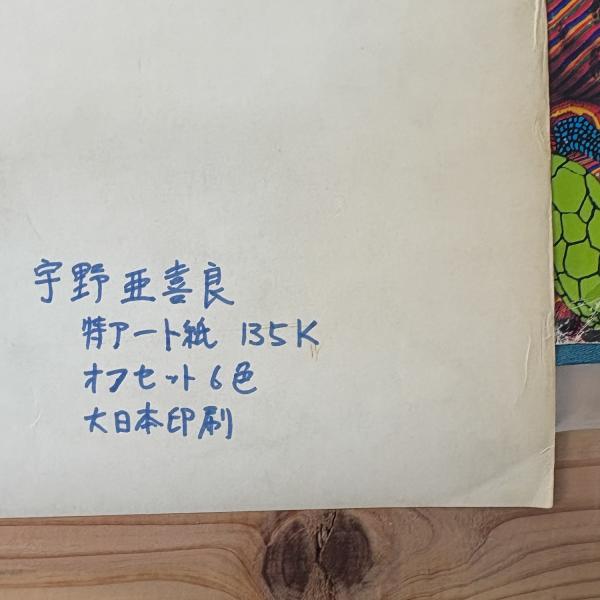 宇野亜喜良
特アート紙 135K
オフセット6色
大日本印刷